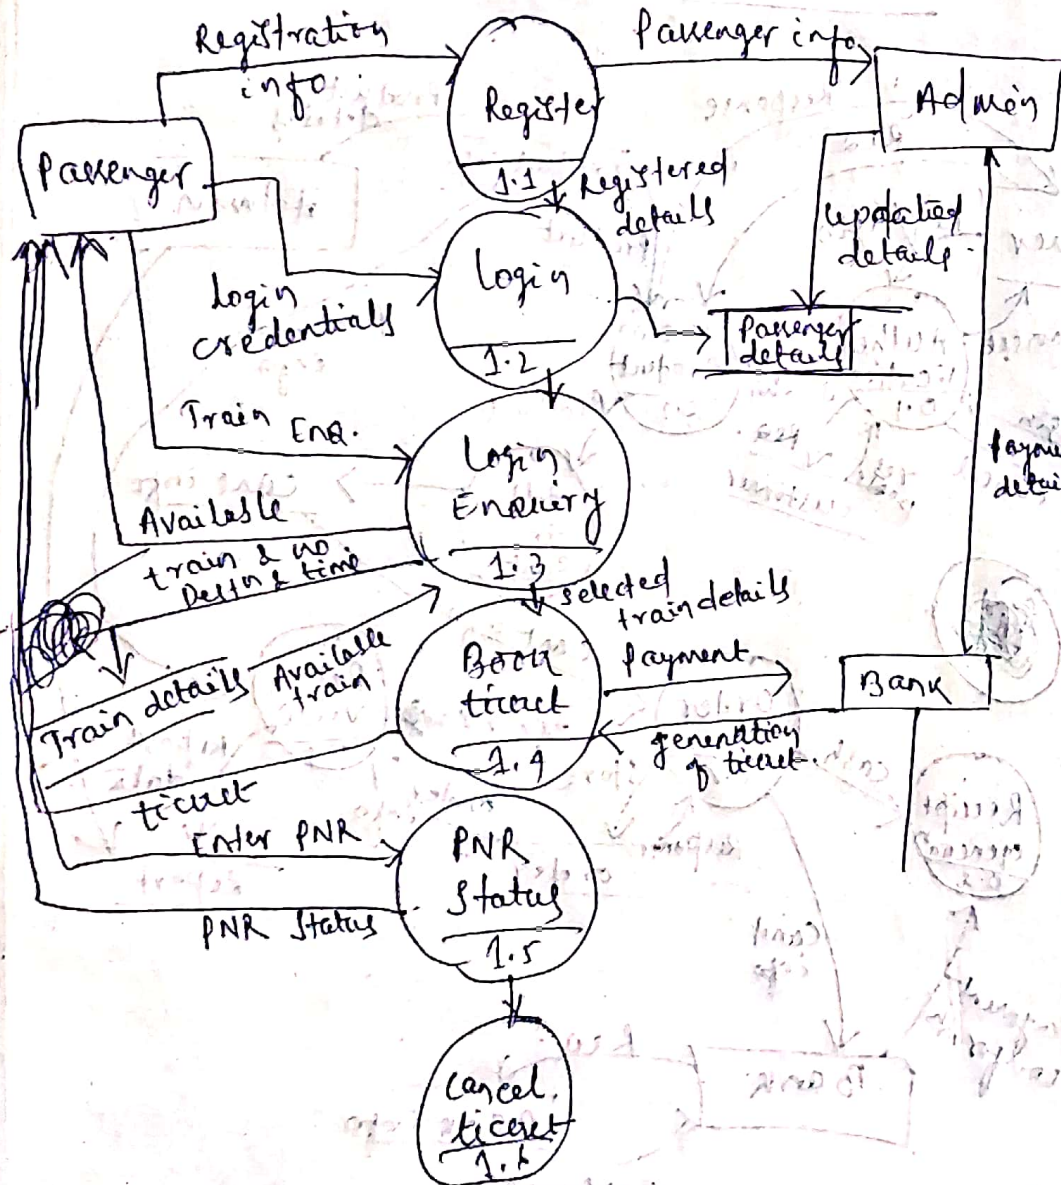 Registration
info
Passenger info
Register
1.1
Admin
Passenger
Registered
details
updated
details
Login
credentials
Login
1.2
Passenger
details
Train Enq.
Login
Enquiry
1.3
Available
train & no
Destn & time
selected
train details
Payment
details
Train details
Available
train
Book
ticket
1.4
Payment
Bank
generation
of ticket.
ticket
Enter PNR
PNR
Status
1.5
PNR Status
Cancel.
ticket